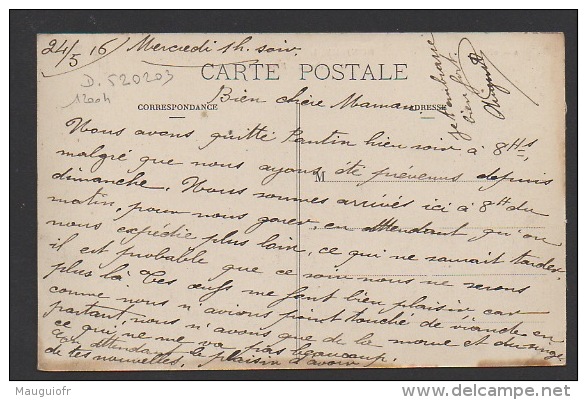 24/5 16/ Mercredi 1h. soir.
D. 520203
1200h
CARTE POSTALE
CORRESPONDANCE
ADRESSE
M
Bien chère Maman
Nous avons quitté Pantin hier soir à 8Hs,
malgré que nous ayons été prévenus depuis
dimanche. Nous sommes arrivés ici à 8H du
matin, pour nous garer, en attendant qu'on
nous expédie plus loin, ce qui ne saurait tarder,
il est probable que ce soir nous ne serons
plus là. Tes œufs me font bien plaisir, car
comme nous n'avions point touché de viande en
partant, nous n'avons que de la morue et du singe
ce qui ne me va pas beaucoup.
En attendant le plaisir d'avoir
de tes nouvelles,
je t'embrasse
bien fort.
Mauguiofr
www.delcampe.net